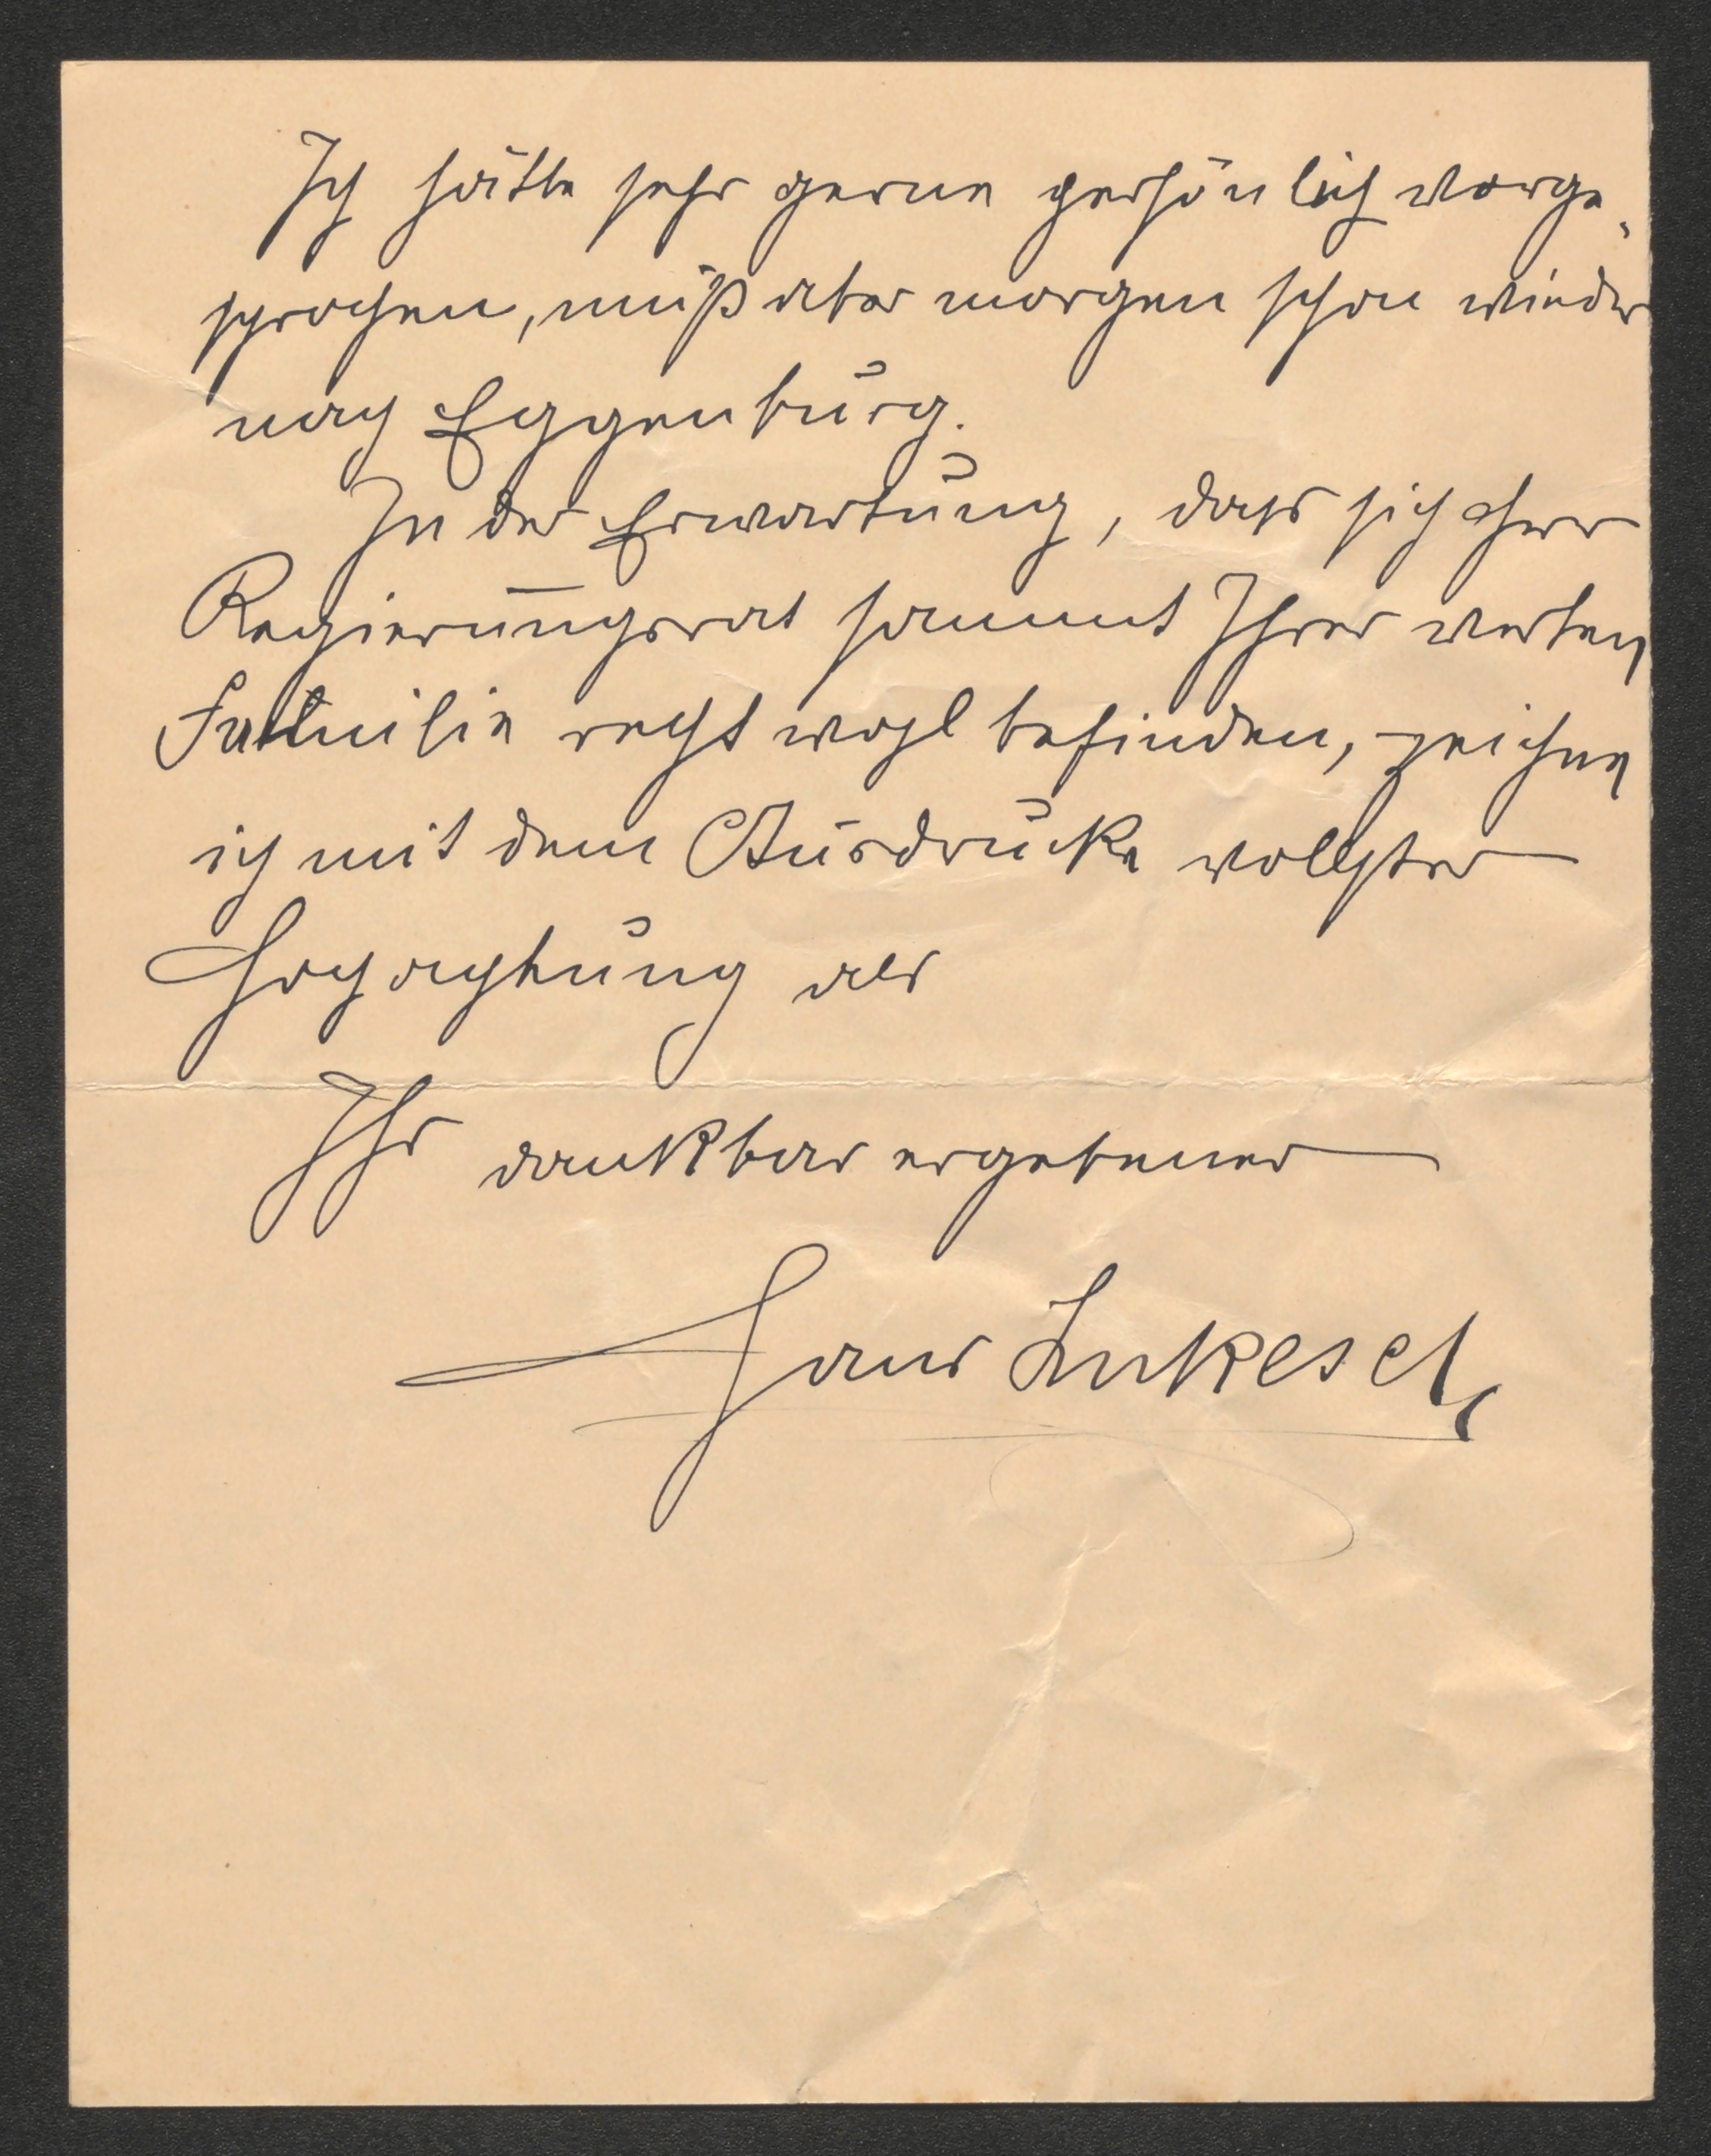 Ich hätte sehr gerne persönlich vorge-
sprochen, muß aber morgen schon wieder
nach Eggenburg.
In der Erwartung, dass sich Herr
Regierungsrat sammt Ihrer werten
Familie recht wohl befinden, zeichne
ich mit dem Ausdrucke vollster
Hochachtung als
Ihr dankbar ergebener
Hans Lukesch